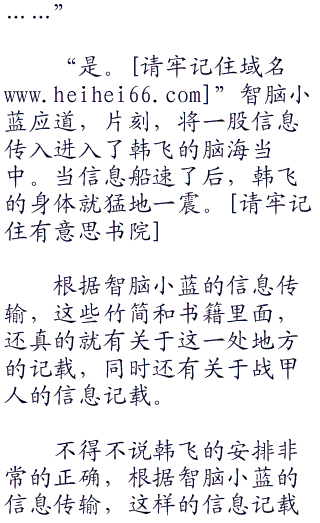 ……”
“是。[请牢记住域名
www.heihei66.com]”智脑小
蓝应道，片刻，将一股信息
传入进入了韩飞的脑海当
中。当信息船速了后，韩飞
的身体就猛地一震。[请牢记
住有意思书院]
根据智脑小蓝的信息传
输，这些竹简和书籍里面，
还真的就有关于这一处地方
的记载，同时还有关于战甲
人的信息记载。
不得不说韩飞的安排非
常的正确，根据智脑小蓝的
信息传输，这样的信息记载